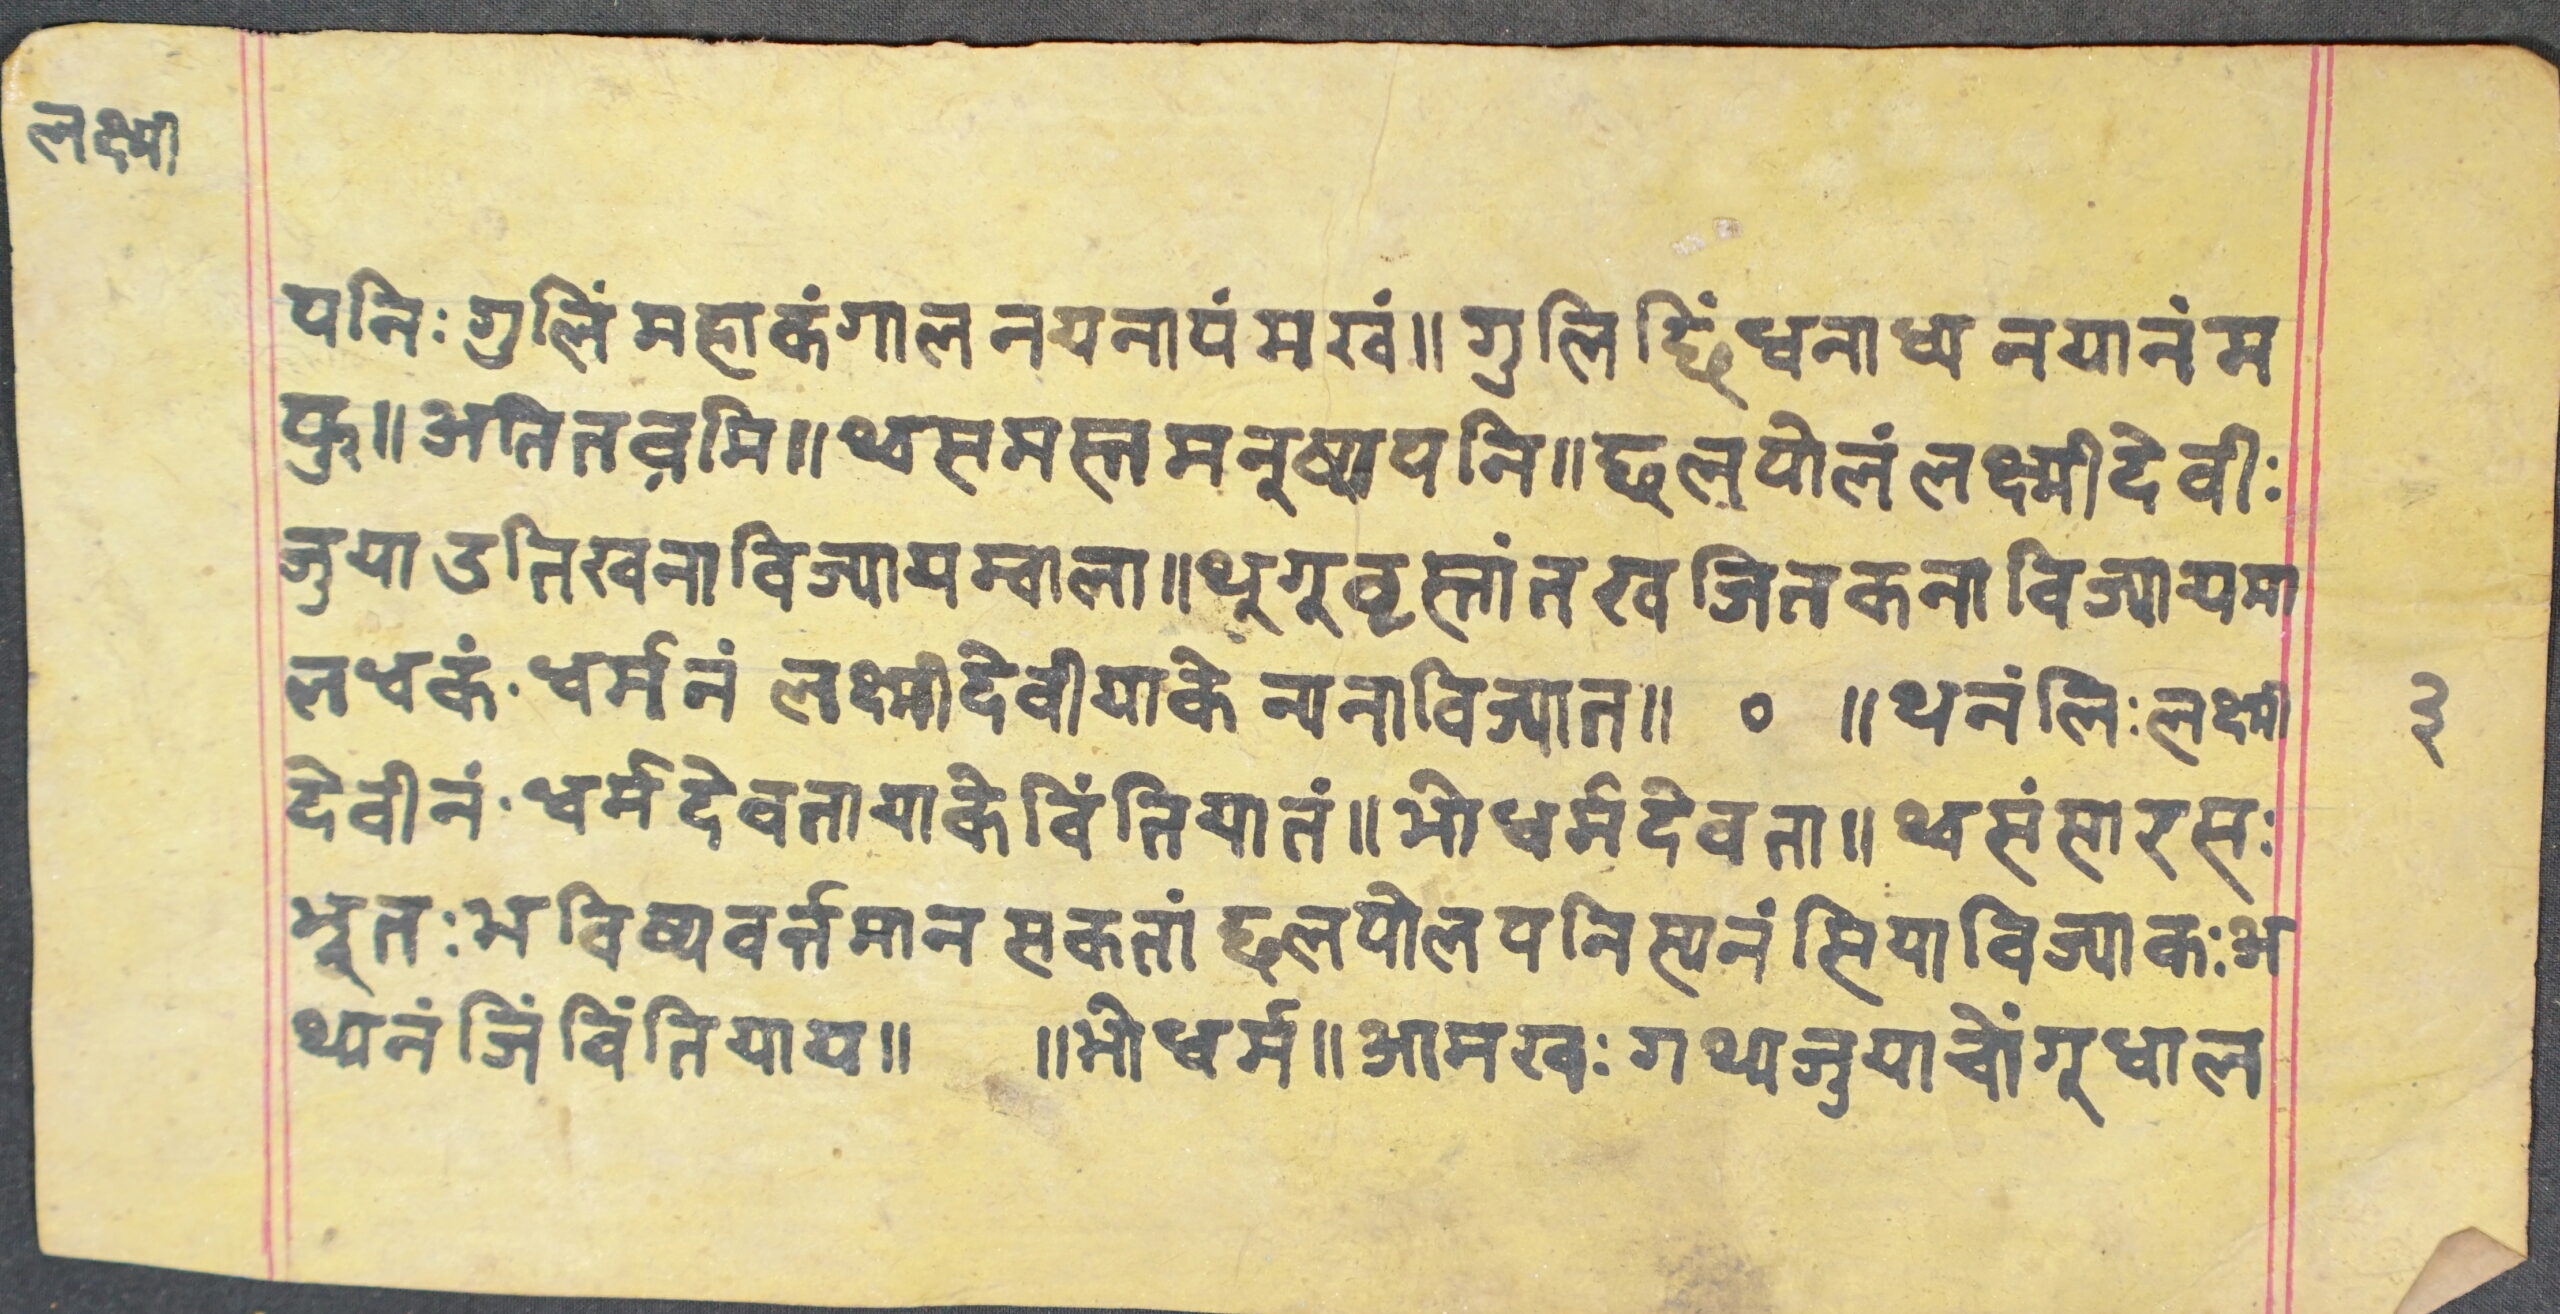 लक्ष्मी
पनिः गुलिं महाकंगाल नयनापं मखं॥ गुलि छिं ध्वनाध्य नयानं म
फु॥ अतितव्रमि॥ थ्व समस्त मनूष्यपनि॥ छलपोलं लक्ष्मीदेवीः
जुया उतिखना विज्यायम्वाला॥ थुगू वृस्तांत खजित कना विज्याय्यमा
ल धकं · धर्मनं लक्ष्मीदेवीयाके न्यना विज्यात॥ ० ॥ थनंलिः लक्ष्मी
देवीनं · धर्मदेवतायाके विंतियातं॥ भो धर्मदेवता॥ थ्व संसारसः
भूतः भविष्य वर्त्तमान सकतां छलपोलपनिस्यनं सिया विज्याकः अ
थ्यनं जिं विंतियाय॥ ॥ भो धर्म॥ आमखः गथ्यजुया चोंगू धाल
३